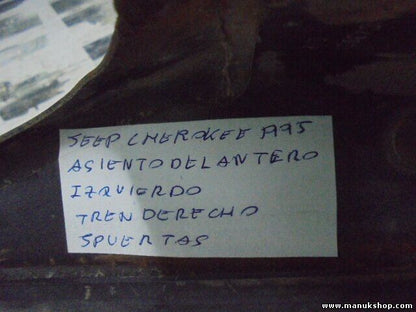 SEEP CHEROKEE A95
ASIENTO DELANTERO
IZQUIERDO
TREN DERECHO
5PUERTAS
www.manukshop.com